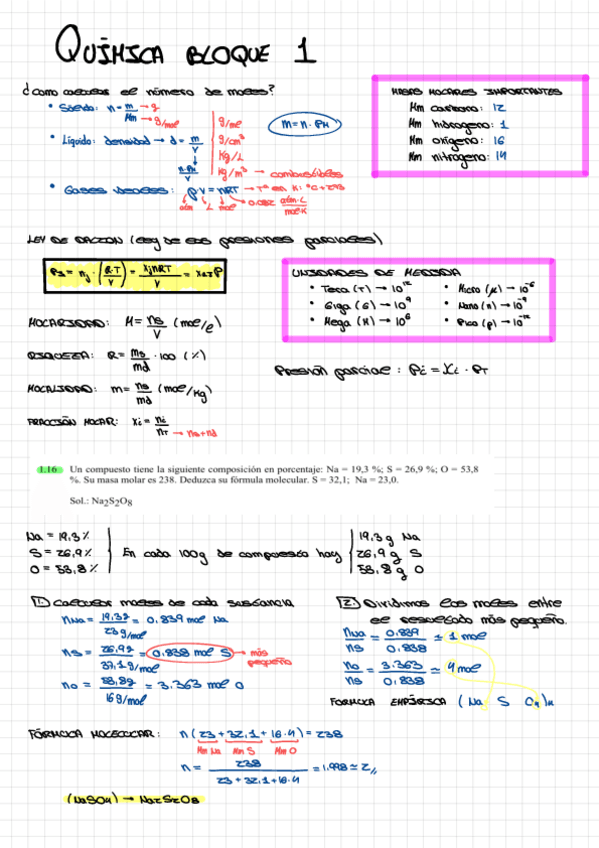 QUÍMICA BLOQUE 1
¿Como calcular el número de moles?
• Sólido: n = m/Mm → g → g/mol
m = n · PM
• Líquido: densidad → d = m/V
n·PM/V
g/ml
g/cm³
Kg/L
Kg/m³ → combustibles
• Gases ideales: PV = nRT → Tª en K: °C + 273
atm L mol → 0.082 atm·L/mol·K
MASAS MOLARES IMPORTANTES
Mm carbono: 12
Mm hidrogeno: 1
Mm oxígeno: 16
Mm nitrógeno: 14
LEY DE DALTON (ley de las presiones parciales)
PJ = nj · (R·T/V) = XjnRT/V = XJP
UNIDADES DE MEDIDA
• Tera (T) → 10¹²
• Giga (G) → 10⁹
• Mega (M) → 10⁶
• Micro (μ) → 10⁻⁶
• Nano (n) → 10⁻⁹
• Pico (p) → 10⁻¹²
MOLARIDAD: M = ns/V (mol/l)
RIQUEZA: R = ms/md · 100 (%)
Presión parcial: Pi = Xi · PT
MOLALIDAD: m = ns/md (mol/Kg)
FRACCIÓN MOLAR: Xi = ni/nT → ns+nd
1.16 Un compuesto tiene la siguiente composición en porcentaje: Na = 19,3 %; S = 26,9 %; O = 53,8
%. Su masa molar es 238. Deduzca su fórmula molecular. S = 32,1; Na = 23,0.
Sol.: Na₂S₂O₈
Na = 19,3%
S = 26,9%
O = 53,8%
En cada 100g de compuesto hay
19,3 g Na
26,9 g S
53,8 g O
1. Calcular moles de cada sustancia
nNa = 19,3g / 23 g/mol = 0.839 mol Na
nS = 26,9g / 32,1 g/mol = 0.838 mol S → más pequeño
nO = 53,8g / 16 g/mol = 3.363 mol O
2. Dividimos los moles entre
el resultado más pequeño.
nNa/nS = 0.839/0.838 ≃ 1 mol
nO/nS = 3.363/0.838 ≃ 4 mol
FORMULA EMPÍRICA (Na S O4)n
FÓRMULA MOLECULAR: n(23 + 32,1 + 16·4) = 238
Mm Na Mm S Mm O
n = 238 / 23 + 32,1 + 16·4 = 1.998 ≃ 2//
(NaSO4) → Na2S2O8